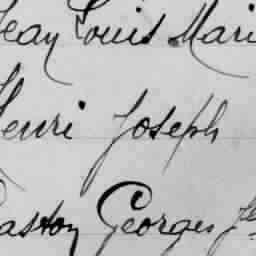 Jean Louis Mari
Henri Joseph
Gaston Georges Je